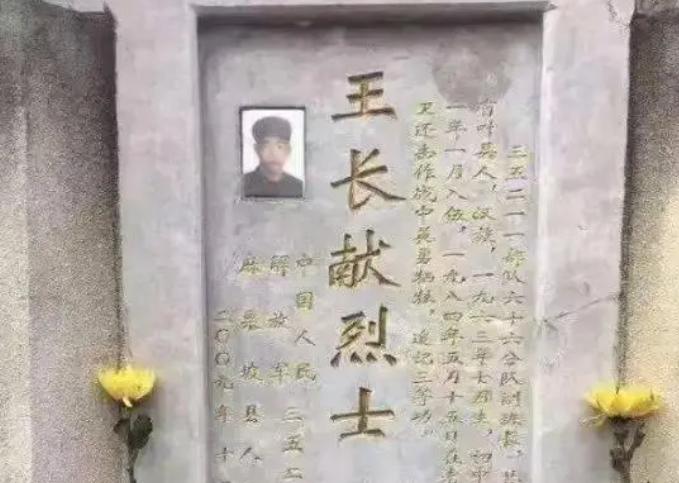 三五二一一部队六十六分队副班长，
省叶县人，汉族，一九六三年七月生，初中
一年一月入伍，一九八四年五月十五日在老
卫还击作战中英勇牺牲，追记三等功。
王长献烈士
中国人民
解放军
三五二
麻栗坡县人
二〇〇九年十